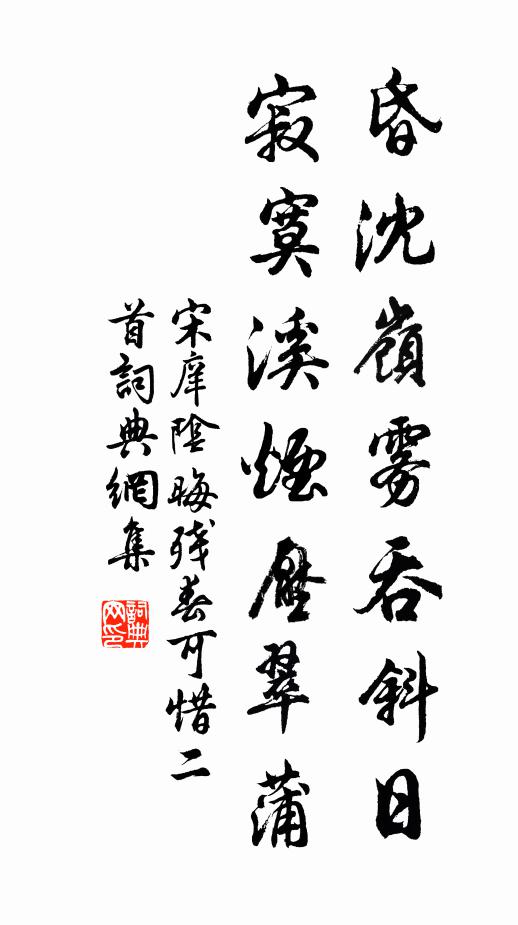 昏沈嶺雾吞斜日
寂寞溪煙壓翠蒲
宋庠陰晦殘春可惜二
首詞典網集
詞典
网印